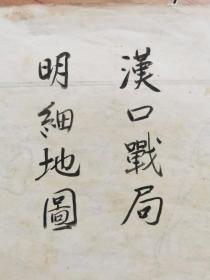 漢口戰局
明細地圖